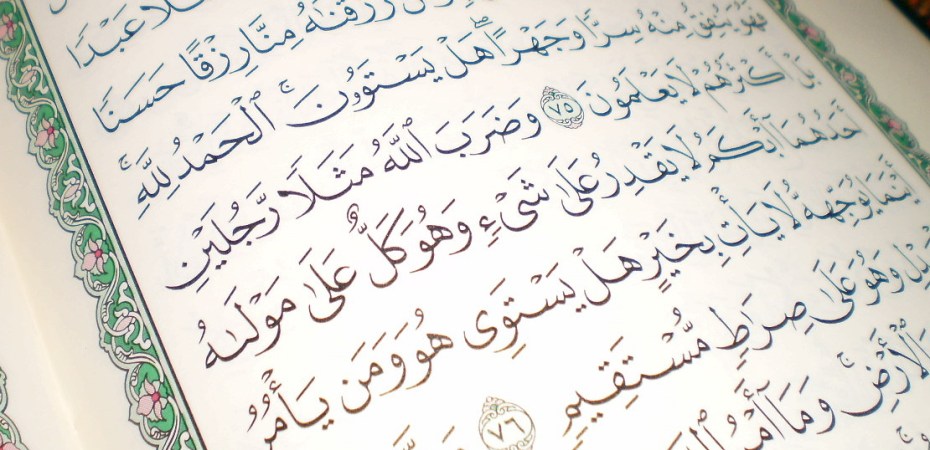 عَبْدًا
رَّزَقْنَٰهُ مِنَّا رِزْقًا حَسَنًا
فَهُوَ يُنفِقُ مِنْهُ سِرًّا وَجَهْرًا ۖ هَلْ يَسْتَوُۥنَ ۚ ٱلْحَمْدُ لِلَّهِ ۚ
بَلْ أَكْثَرُهُمْ لَا يَعْلَمُونَ ٧٥ وَضَرَبَ ٱللَّهُ مَثَلًا رَّجُلَيْنِ
أَحَدُهُمَآ أَبْكَمُ لَا يَقْدِرُ عَلَىٰ شَىْءٍ وَهُوَ كَلٌّ عَلَىٰ مَوْلَىٰهُ
أَيْنَمَا يُوَجِّههُّ لَا يَأْتِ بِخَيْرٍ هَلْ يَسْتَوِى هُوَ وَمَن يَأْمُرُ
وَهُوَ عَلَىٰ صِرَٰطٍ مُّسْتَقِيمٍ ٧٦
وَٱلْأَرْضِ ۚ وَمَآ أَمْرُ